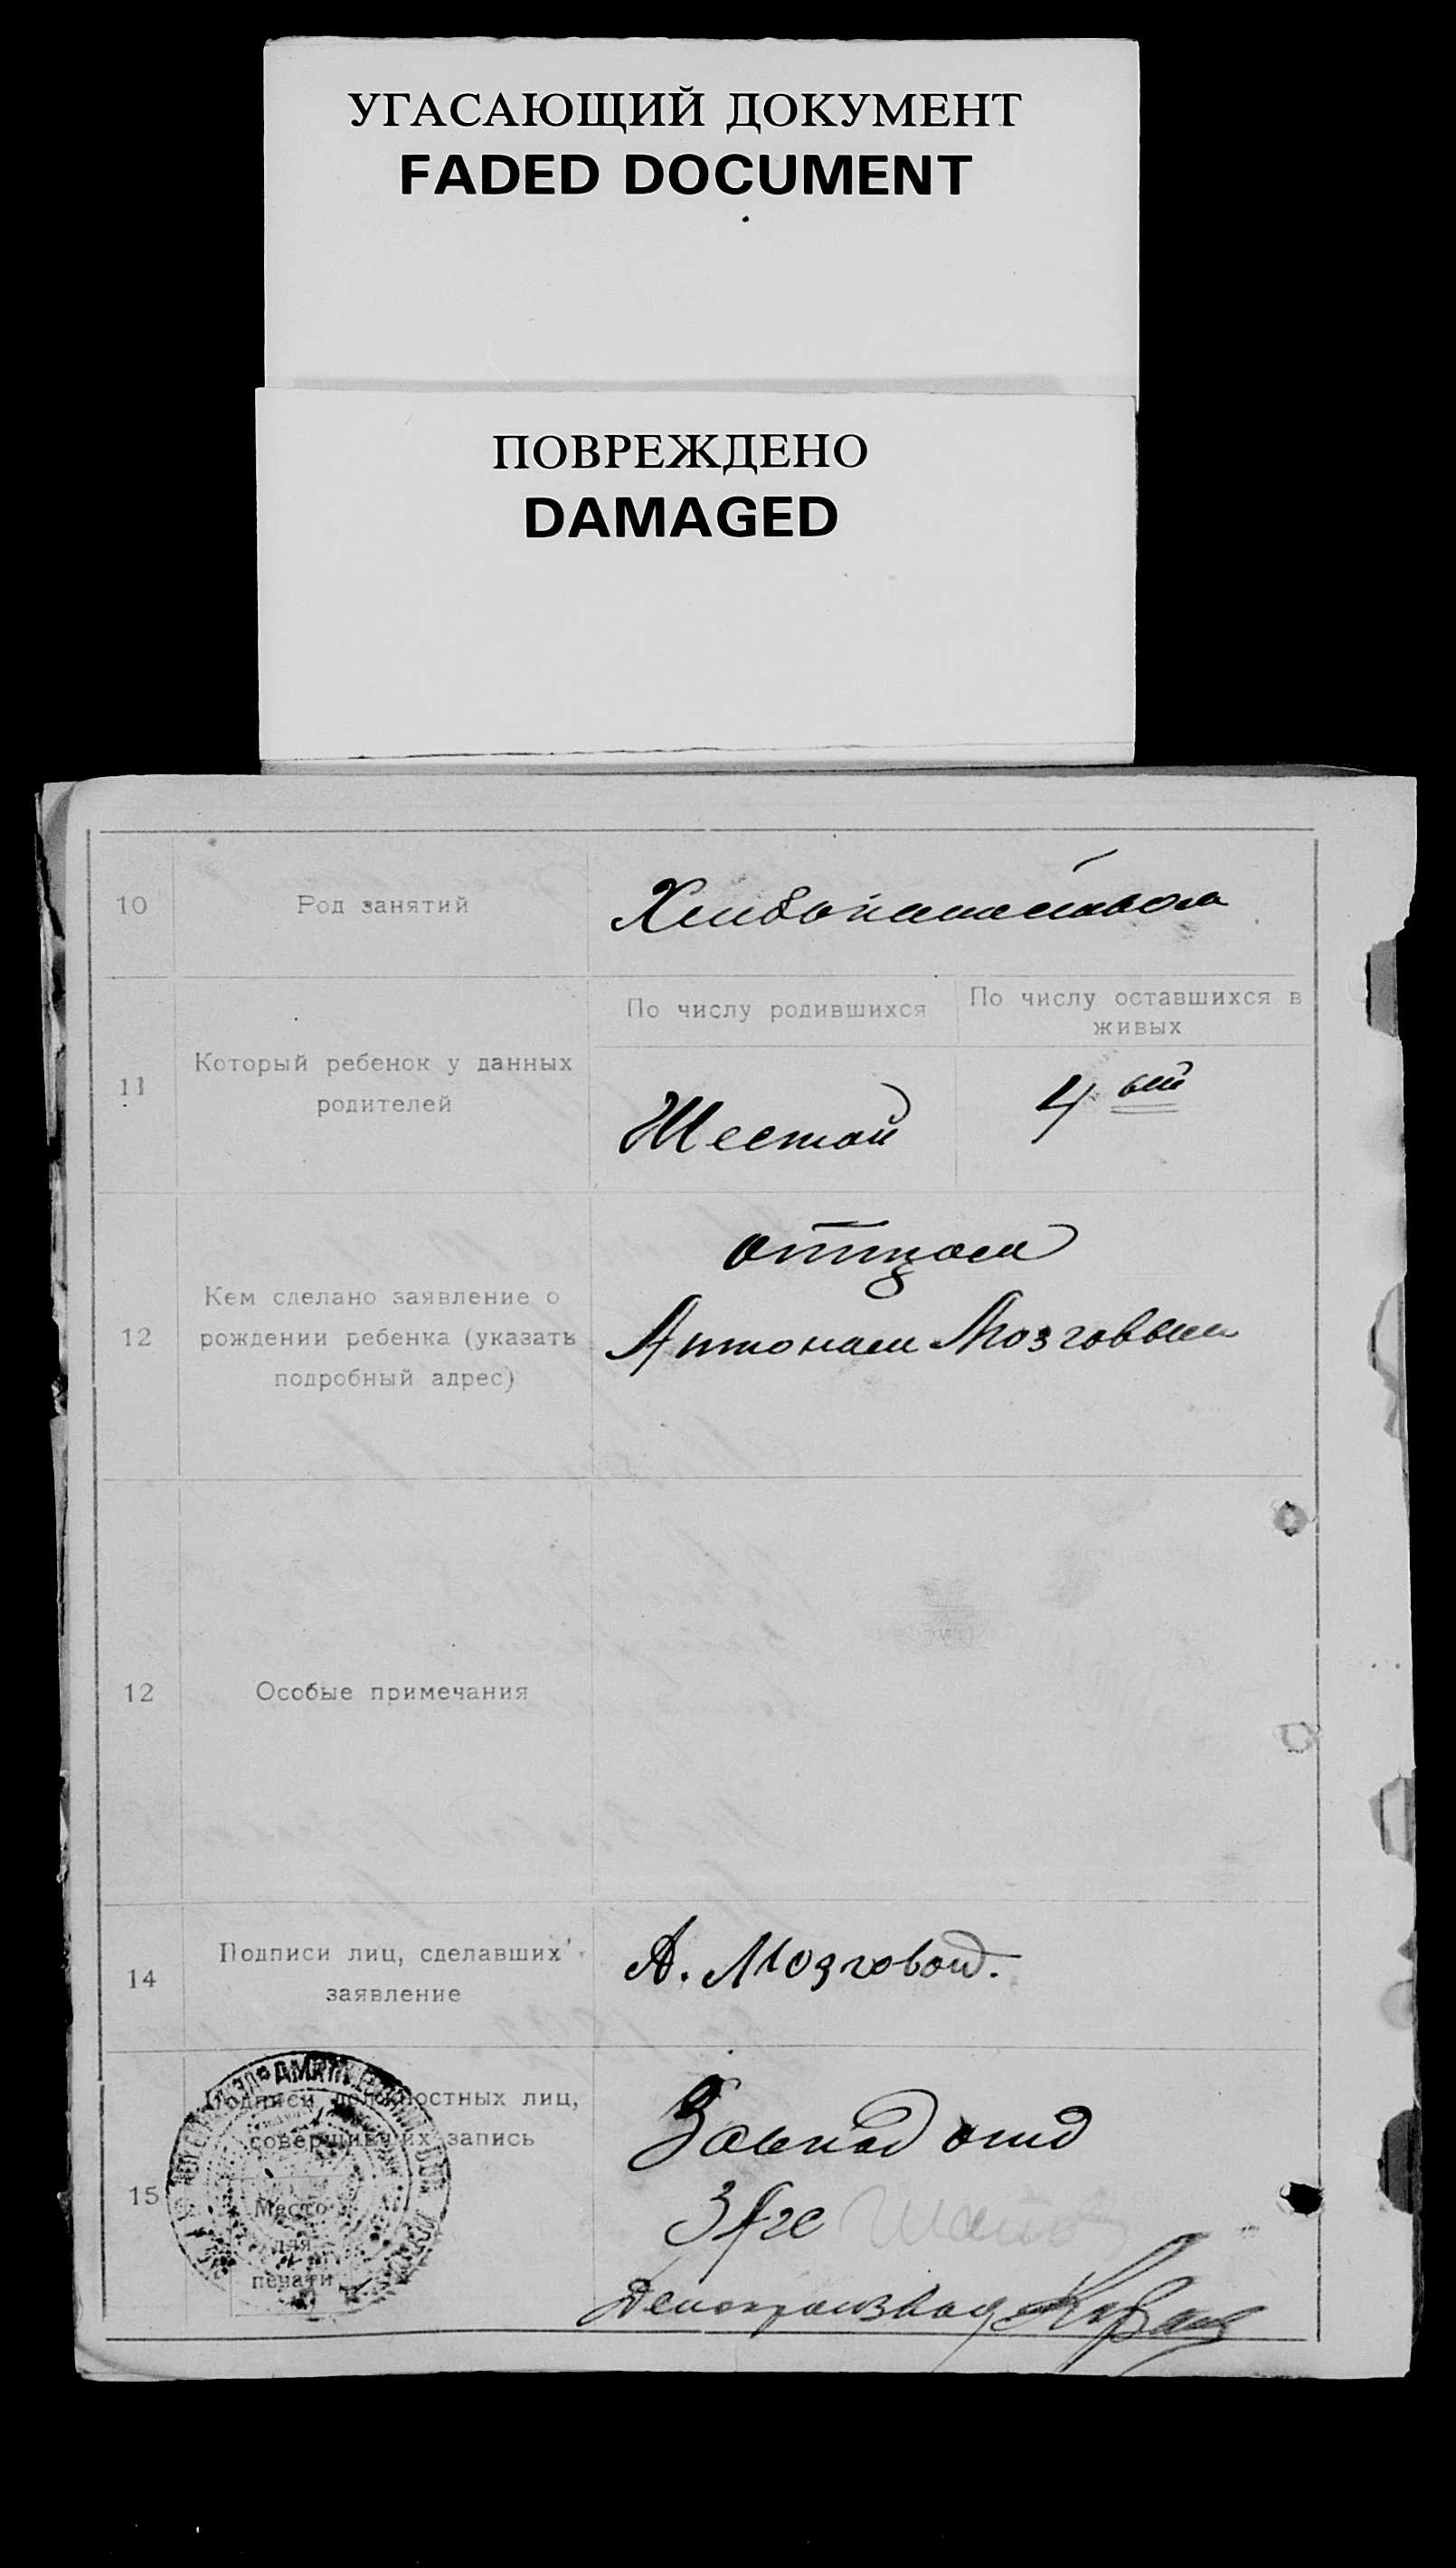 УГАСАЮЩИЙ ДОКУМЕНТ
FADED DOCUMENT
ПОВРЕЖДЕНО
DAMAGED
10 Род занятий
11 Который ребенок у данных
родителей
По числу родившихся
По числу оставшихся в
живых
Шестой
4 ый
12 Кем сделано заявление о
рождении ребенка (указать
подробный адрес)
отцом
Антоном Мозговым
12 Особые примечания
14 Подписи лиц, сделавших
заявление
А. Мозговой.
15 Подписи должностных лиц,
совершивших запись
Место
для
печати
Делопроизвод